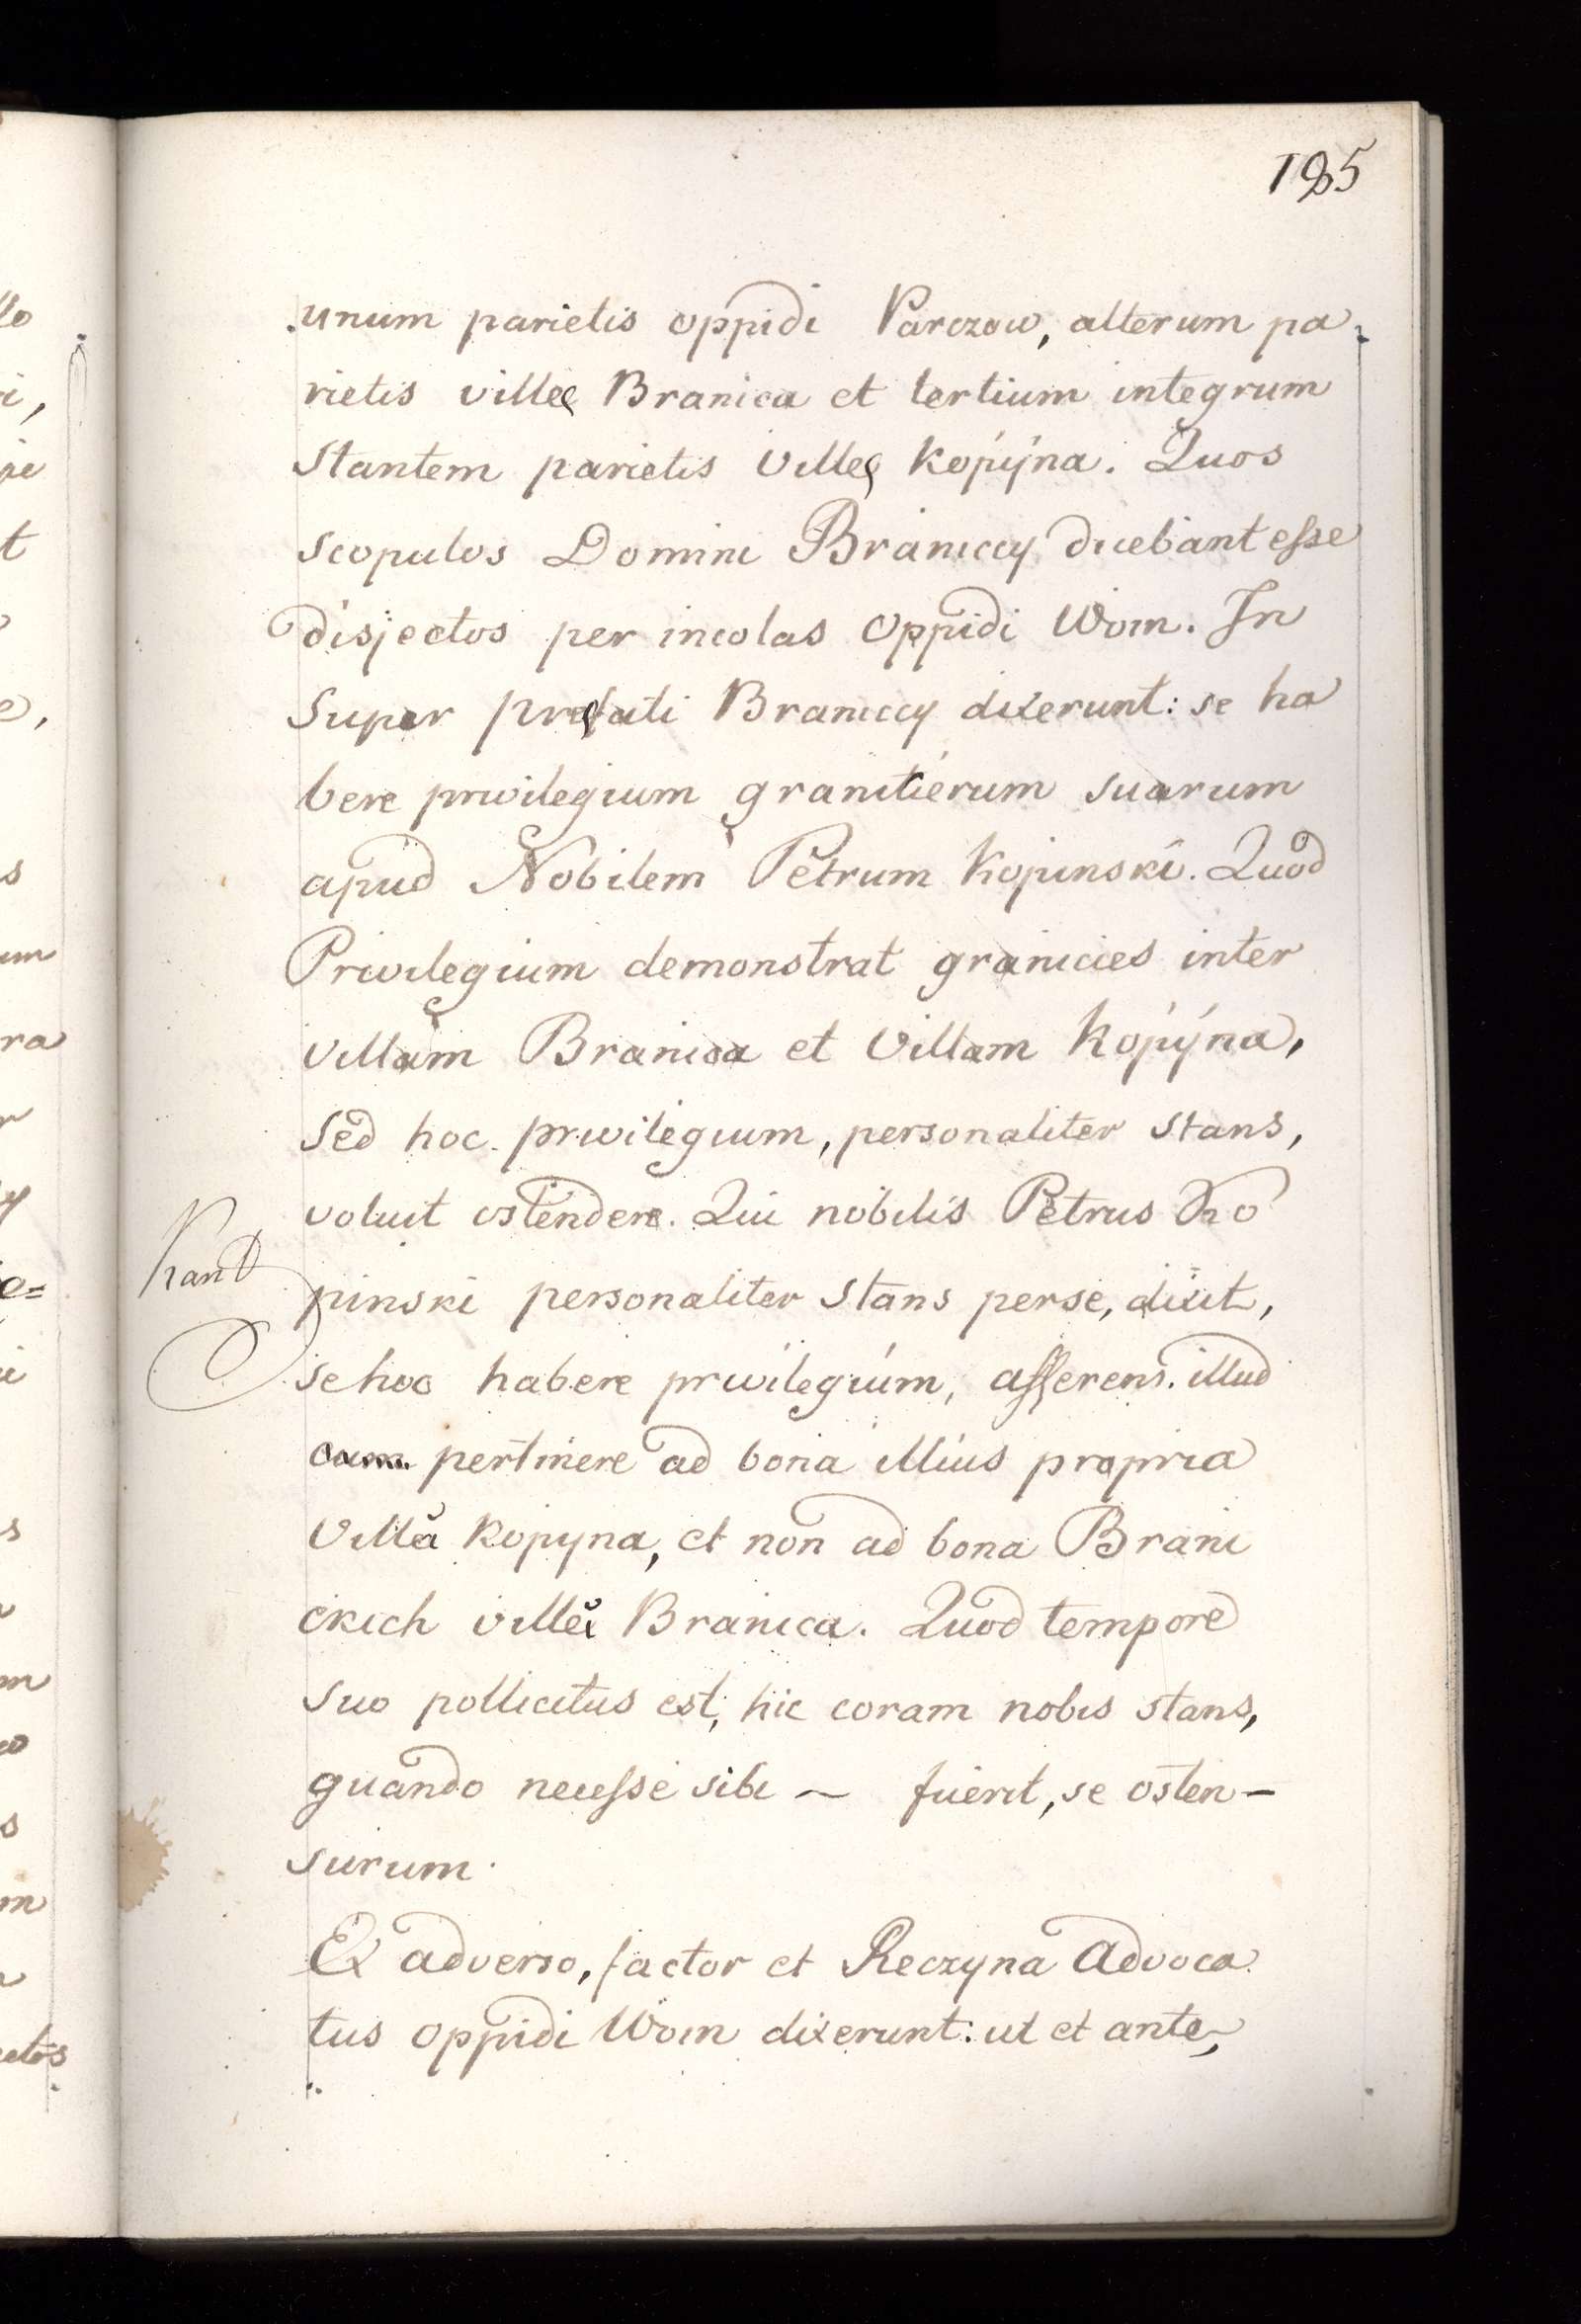 185
unum parietis oppidi Parczow, alterum pa
rietis villę Branica et tertium integrum
stantem parietis villę Kopÿna. Quos
scopulos Domini Braniccy dicebant esse
disjectos per incolas oppidi Woin. In
super pręfati Braniccy dixerunt: se ha
bere privilegium granitierum suarum
apud Nobilem Petrum Kopinski. Quod
Privilegium demonstrat granicies inter
villam Branica et villam Kopÿna,
sed hoc privilegium, personaliter stans,
voluit ostendere. Qui nobilis Petrus Ko
pinski personaliter stans per se, dixit,
se hoc habere privilegium, asserens illud
pertinere ad bona illius propria
villa Kopyna, et non ad bona Brani
ckich villa Branica. Quod tempore
suo pollicitus est, hic coram nobis stans,
quando necesse sibi ~ fuerit, se osten-
surum.
Ex adverso, factor et Reczyna advoca
tus oppidi Woin dixerunt: ut et ante,